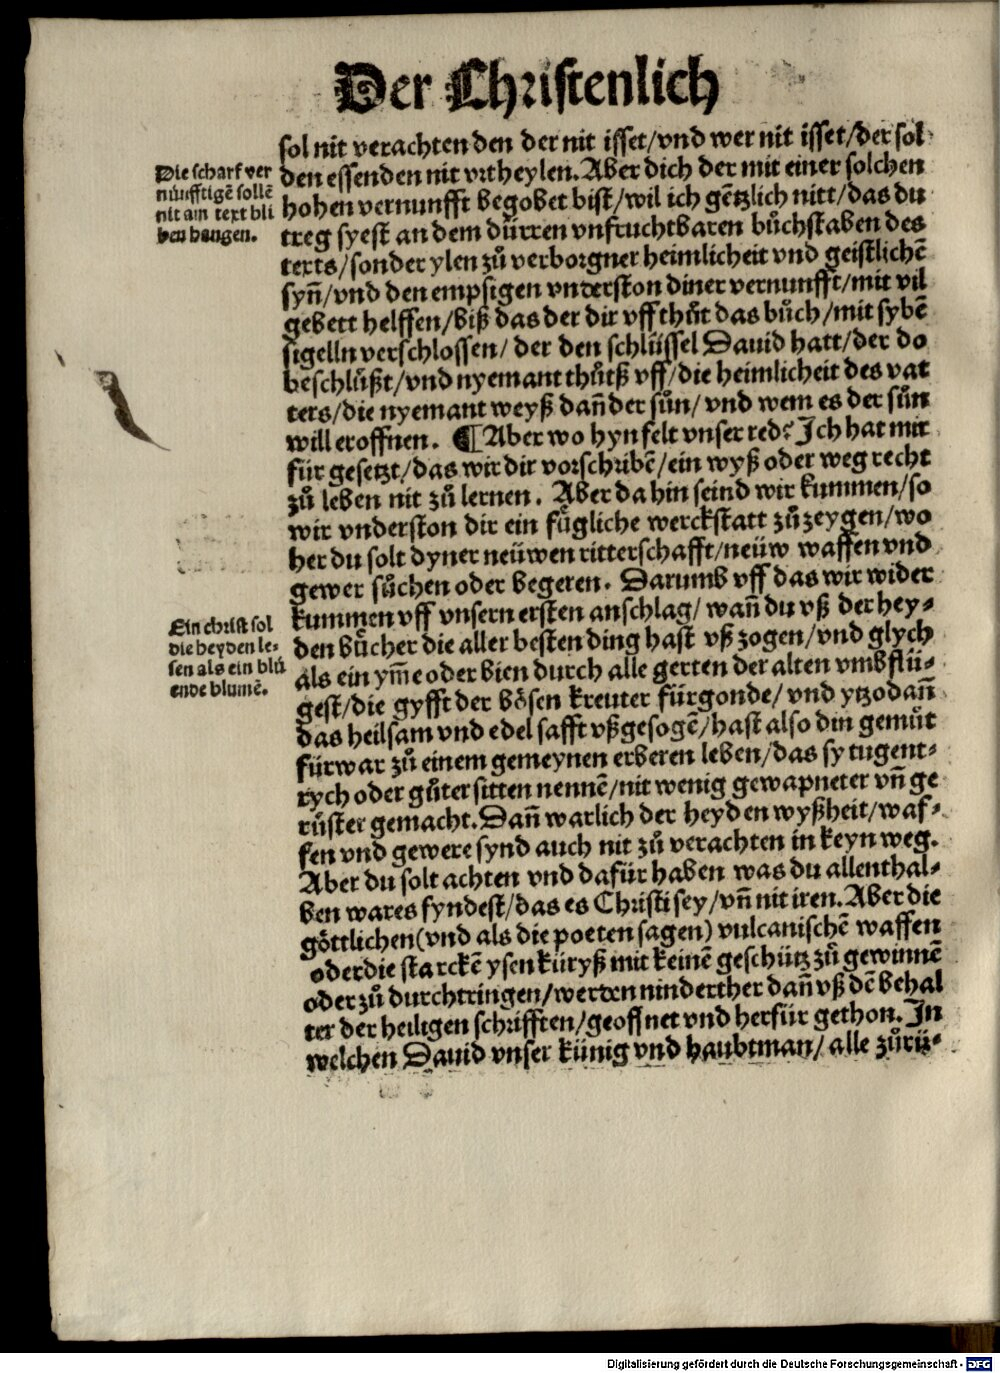 Der Christenlich
sol nit verachten den der nit isset/vnd wer nit isset/der sol
den essenden nit vrtheylen. Aber dich der mit einer solchen
hohen vernunfft begobet bist/wil ich gētzlich nitt/das du
treg syest an dem dürren vnfruchtbaren bůchstaben des
texts/sonder ylen zů verborgner heimlicheit vnd geistlichē
syn̄/vnd den empsigen vnderston diner vernunfft/mit vil
gebett helffen/biß das der dir vff thůt das bůch/mit sybē
sigelln verschlossen/ der den schlüssel Dauid hatt/der do
beschlüßt/vnd nyemant thůtß vff/die heimlicheit des vat
ters/die nyemant weyß dan̄ der sůn/vnd wem es der sůn
will eroffnen. ¶ Aber wo hyn felt vnser red? Ich hat mir
für gesetzt/das wir dir vorschribē/ein wyß oder weg recht
zů leben nit zů lernen. Aber da hin seind wir kummen/so
wir vnderston dir ein fůgliche werckstatt zů zeygen/wo
her du solt dyner neüwen ritterschafft/neüw waffen vnd
gewer sůchen oder begeren. Darumb vff das wir wider
kummen vff vnsern ersten anschlag/wan̄ du vß der hey⸗
den bůcher die aller besten ding hast vß zogen/vnd glych
als ein ym̄e oder bien durch alle gerten der alten vmbflü⸗
gest/die gyfft der bösen kreuter fürgonde/vnd ytzo dan̄
das heilsam vnd edel safft vßgesogē/hast also din gemůt
fürwar zů einem gemeynen erberen leben/das sy tugent⸗
rych oder gůter sitten nennē/nit wenig gewapneter vn̄ ge
rüster gemacht. Dan̄ warlich der heyden wyßheit/waf⸗
fen vnd gewere synd auch nit zů verachten in keyn weg.
Aber du solt achten vnd dafür haben was du allenthal⸗
ben wares fyndest/das es Christi sey/vn̄ nit iren. Aber die
göttlichen (vnd als die poeten sagen) vulcanischē waffen
oder die starckē ysen küryß mit keinē geschütz zů gewinnē
oder zů durchtringen/werden ninderther dan̄ vß dē behal
ter der heiligen schrifften/geoffnet vnd herfür gethon. In
welchen Dauid vnser künig vnd haubtman/ alle zůrü⸗
Die scharf ver
nünfftigē sollē
nit am text bli
ben hangen.
Ein christ sol
die heyden le⸗
sen als ein blů
ende blumē.
Digitalisierung gefördert durch die Deutsche Forschungsgemeinschaft - DFG